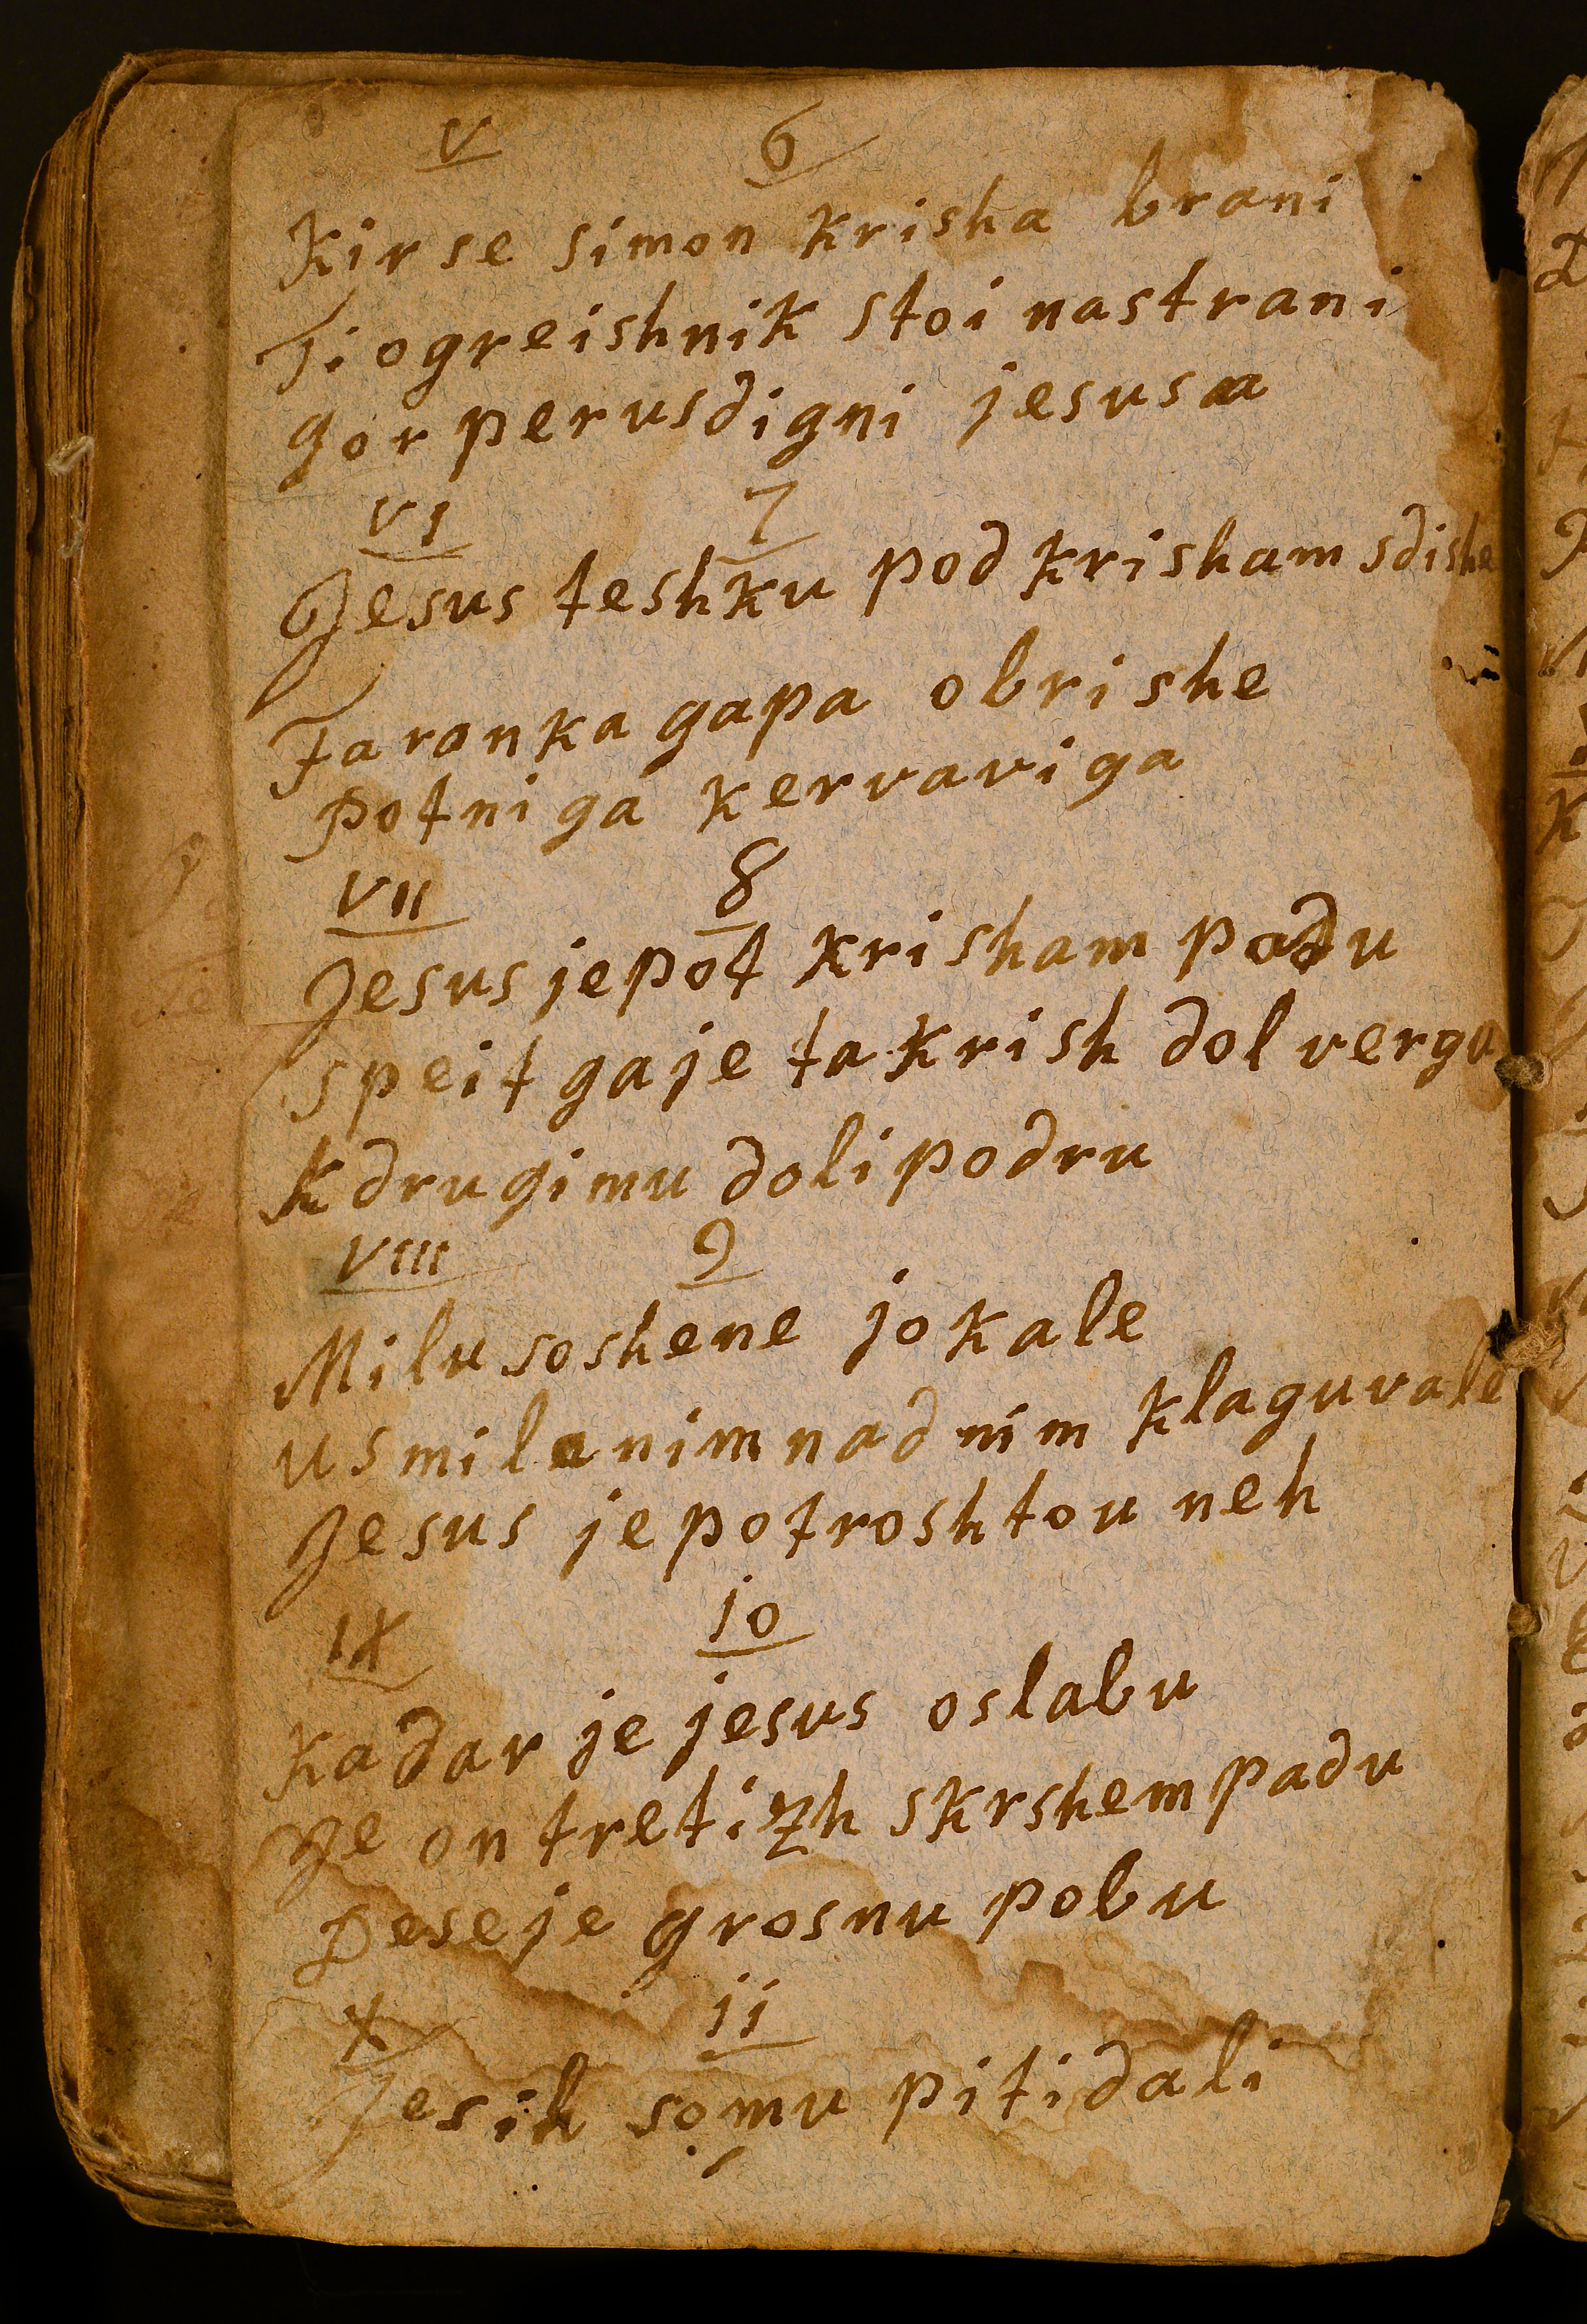 V 6
Kir se simon krisha brani
Ti ogreishnik stoi nastrani
gor perusdigni jesusa
VI 7
Jesus teshku pod krisham sdishe
Ta ronka gapa obrishe
potni ga kervavi ga
VII 8
Jesus je pot krisham padu
speit ga je ta krish dol verga
k drugimu doli podru
VIII 9
Milu so shene jokale
usmilenim nad nim klaguvale
Jesus je potroshtou neh
IX 10
Kadar je jesus oslabu
Je on tretizh skrshem padu
De se je grosnu pobu
X 11
Jesih so mu piti dali